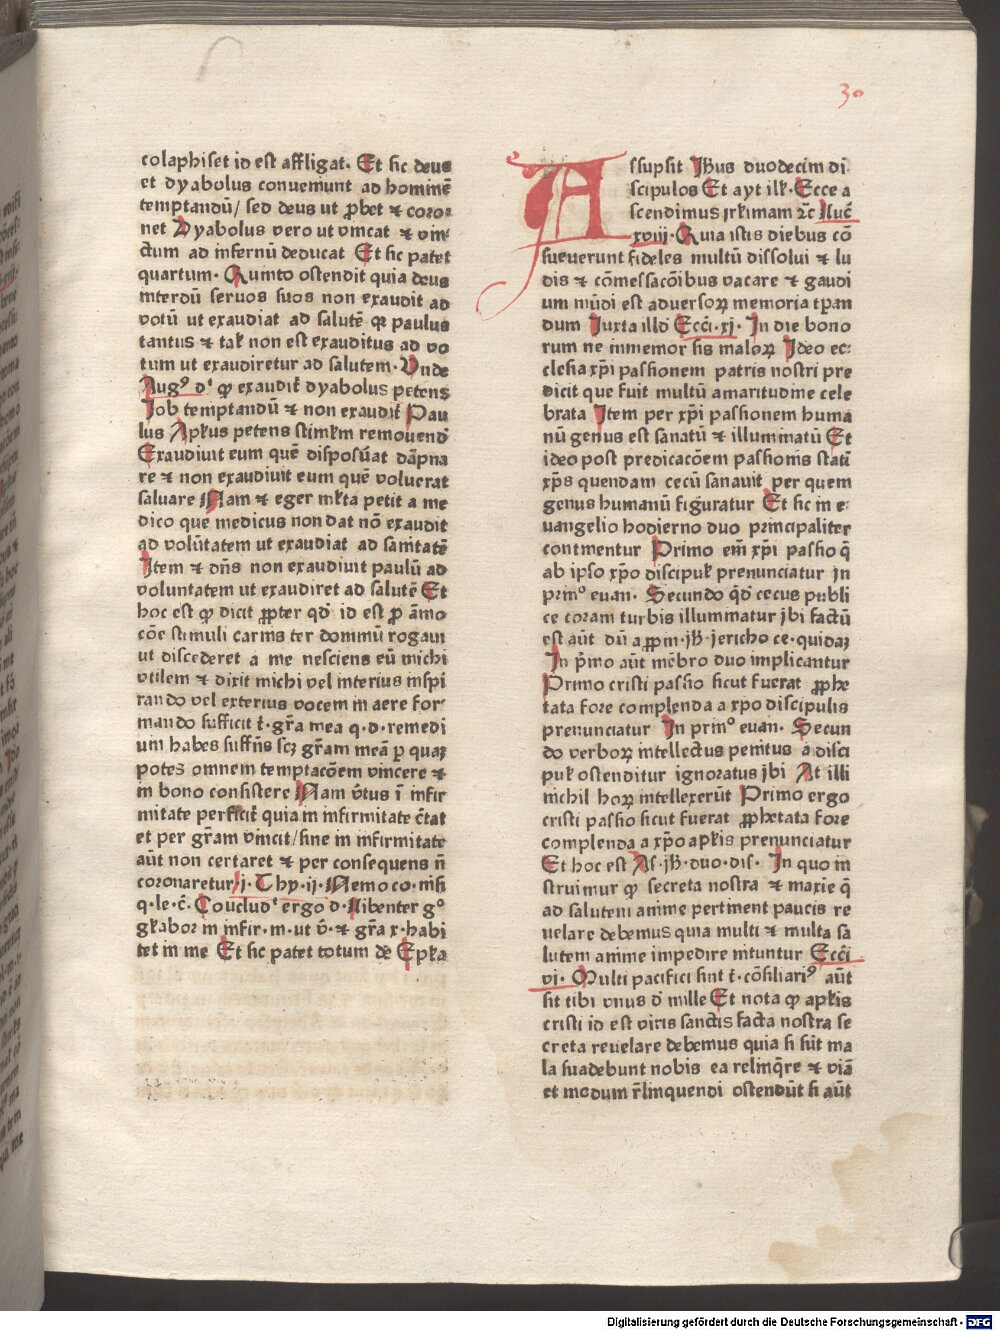 30
colaphiset id est affligat. Et sic deus
et dyabolus conueniunt ad hominē
temptandū/ sed deus ut ꝓbet ⁊ coro⸗
net Dyabolus vero ut vincat ⁊ vin⸗
ctum ad infernū deducat Et sic patet
quartum. Quinto ostendit quia deus
interdū seruos suos non exaudit ad
votū ut exaudiat ad salutē qr paulus
tantus ⁊ tal' non est exauditus ad vo
tum ut exaudiretur ad salutem. Vnde
Augꝰ d' ꝙ exaudit̄ dyabolus petens
Job temptandū ⁊ non exaudit̄ Pau
lus Apl'us petens stiml'm remouend'
Exaudiuit eum quē disposūat dāpna
re ⁊ non exaudiuit eum quē voluerat
saluare Nam ⁊ eger ml'ta petit a me
dico que medicus non dat nō exaudit
ad volūtatem ut exaudiat ad sanitatē
Item ⁊ dn̄s non exaudiuit paulū ad
voluntatem ut exaudiret ad salutē Et
hoc est ꝙ dicit ꝓpter qd' id est ꝓ āmo
cōe stimuli carnis ter dominū rogaui
ut discederet a me nesciens eū michi
vtilem ⁊ dixit michi vel interius inspi
rando vel exterius vocem in aere for⸗
mando sufficit t̄. gr̄a mea q.d. remedi
um habes suffn̄s scꝫ gr̄am meā ꝑ quaꝫ
potes omnem temptacōem vincere ⁊
in bono consistere Nam v̄tus ī infir
mitate perficit̄ quia in infirmitate c̄tat
et per gr̄am vincit/ sine in infirmitate
aūt non certaret ⁊ per consequens n̄
coronaretur/ j. Thy. ij. Nemo co. nisi
q. le. c̄. Coucludˀ ergo d. Libenter gͦ
gl'abor in infir. m. ut v̄. ⁊ gr̄a x. habi
tet in me Et sic patet totum de Ep̄l'a
Assupsit Jh̄us duodecim di⸗
scipulos Et ayt ill'. Ecce a
scendimus jrl'imam ⁊c̄ Luc̄
xviij. Quia istis diebus cō
sueuerunt fideles multū dissolui ⁊ lu
dis ⁊ cōmessacōibus vacare ⁊ gaudi
um mūdi est aduersoꝝ memoria tꝑan
dum Juxta illd' Ecci̅. xj. In die bono
rum ne inmemor sis maloꝝ Ideo ec⸗
clesia xp̄i passionem patris nostri pre
dicit que fuit multū amaritudine cele
brata Item per xp̄i passionem huma
nū genus est sanatū ⁊ illuminatū Et
ideo post predicacōem passionis statī
xp̄s quendam cecū sanauit per quem
genus humanū figuratur Et sic in e⸗
uangelio hodierno duo principaliter
continentur Primo em̄ xp̄i passio q̄
ab ipso xp̄o discipul' prenunciatur in
primͦ euan. Secundo qd̄ cecus publi
ce coram turbis illuminatur jbi factū
est aūt dū aꝓpm. jh̄. jericho ce. quidaꝫ
In p̄mo aūt mēbro duo implicantur
Primo cristi passio sicut fuerat ꝓphe
tata fore complenda a xp̄o discipulis
prenunciatur In primͦ euan. Secun
do verboꝝ intellectus penitus a disci
pul' ostenditur ignoratus jbi At illi
nichil hoꝝ intellexerūt Primo ergo
cristi passio sicut fuerat ꝓphetata fore
complenda a xp̄o apl'is prenunciatur
Et hoc est As. jh̄. duo. dis. In quo in
struimur ꝙ secreta nostra ⁊ maxie q̄
ad salutem anime pertinent paucis re
uelare debemus quia multi ⁊ multa sa
lutem anime impedire nituntur Ecci̅
vj. Multi pacifici sint t̄. cōsiliariꝰ aūt
sit tibi vnus d' mille Et nota ꝙ apl'is
cristi id est viris sanctis facta nostra se
creta reuelare debemus quia si sūt ma
la suadebunt nobis ea relinq̄re ⁊ viā
et modum r̄linquendi ostendūt si aūt
Digitalisierung gefördert durch die Deutsche Forschungsgemeinschaft - DFG